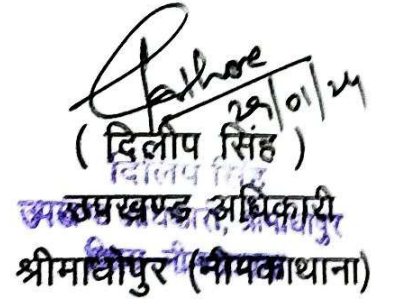 Rathore
29/01/24
( दिलीप सिंह )
दिलीप सिंह
उपखण्ड अधिकारी
श्रीमाधोपुर (नीमकाथाना)